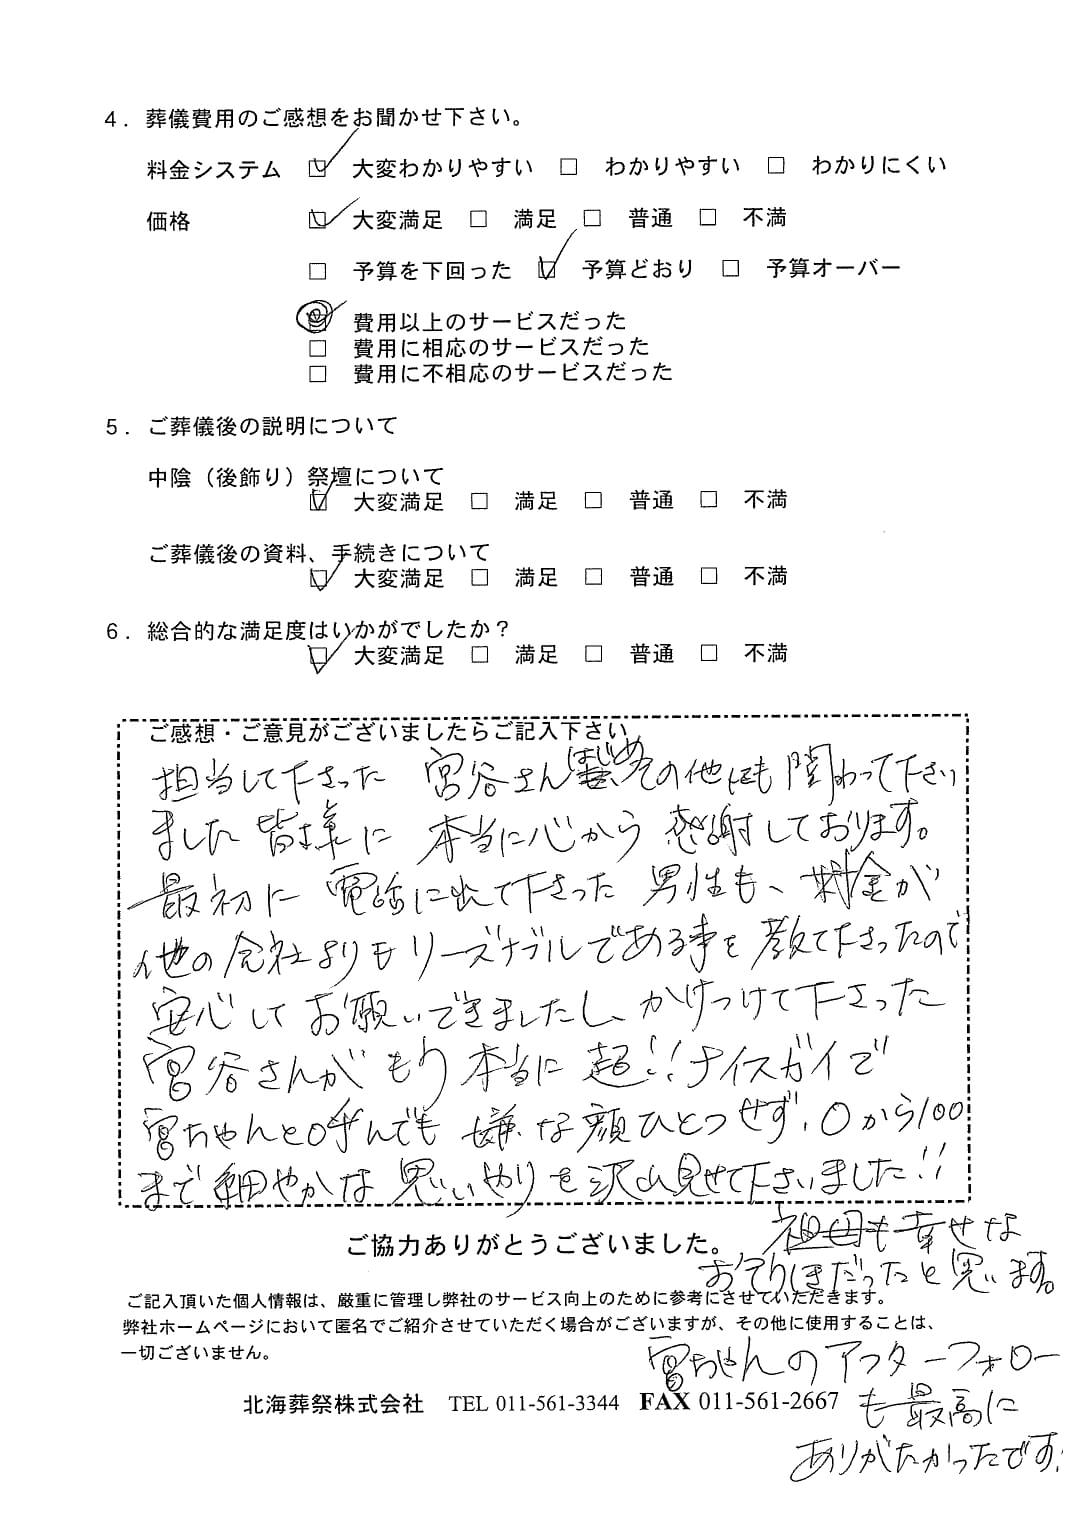 4．葬儀費用のご感想をお聞かせ下さい。
料金システム ☑ 大変わかりやすい □ わかりやすい □ わかりにくい
価格 ☑ 大変満足 □ 満足 □ 普通 □ 不満
□ 予算を下回った ☑ 予算どおり □ 予算オーバー
☑ 費用以上のサービスだった
□ 費用に相応のサービスだった
□ 費用に不相応のサービスだった
5．ご葬儀後の説明について
中陰（後飾り）祭壇について
☑ 大変満足 □ 満足 □ 普通 □ 不満
ご葬儀後の資料、手続きについて
☑ 大変満足 □ 満足 □ 普通 □ 不満
6．総合的な満足度はいかがでしたか？
☑ 大変満足 □ 満足 □ 普通 □ 不満
ご感想・ご意見がございましたらご記入下さい
担当して下さった 宮谷さんはじめその他にも関わって下さい
ました皆様に 本当に心から 感謝しております。
最初に 電話に出て下さった 男性も、料金が
他の会社よりもリーズナブルである事を教えて下さったので
安心してお願いできましたし、かけつけて下さった
宮谷さんがもう本当に超!!ナイスガイで
宮ちゃんと呼んでも嫌な顔ひとつせず、0から100
まで細やかな思いやりを沢山見せて下さいました!!
ご協力ありがとうございました。
祖母も幸せな
お守りほきだったと思います。
ご記入頂いた個人情報は、厳重に管理し弊社のサービス向上のために参考にさせていただきます。
弊社ホームページにおいて匿名でご紹介させていただく場合がございますが、その他に使用することは、
一切ございません。
宮ちゃんのアフターフォロー
も最高に
ありがたかったです!
北海葬祭株式会社 TEL 011-561-3344 FAX 011-561-2667